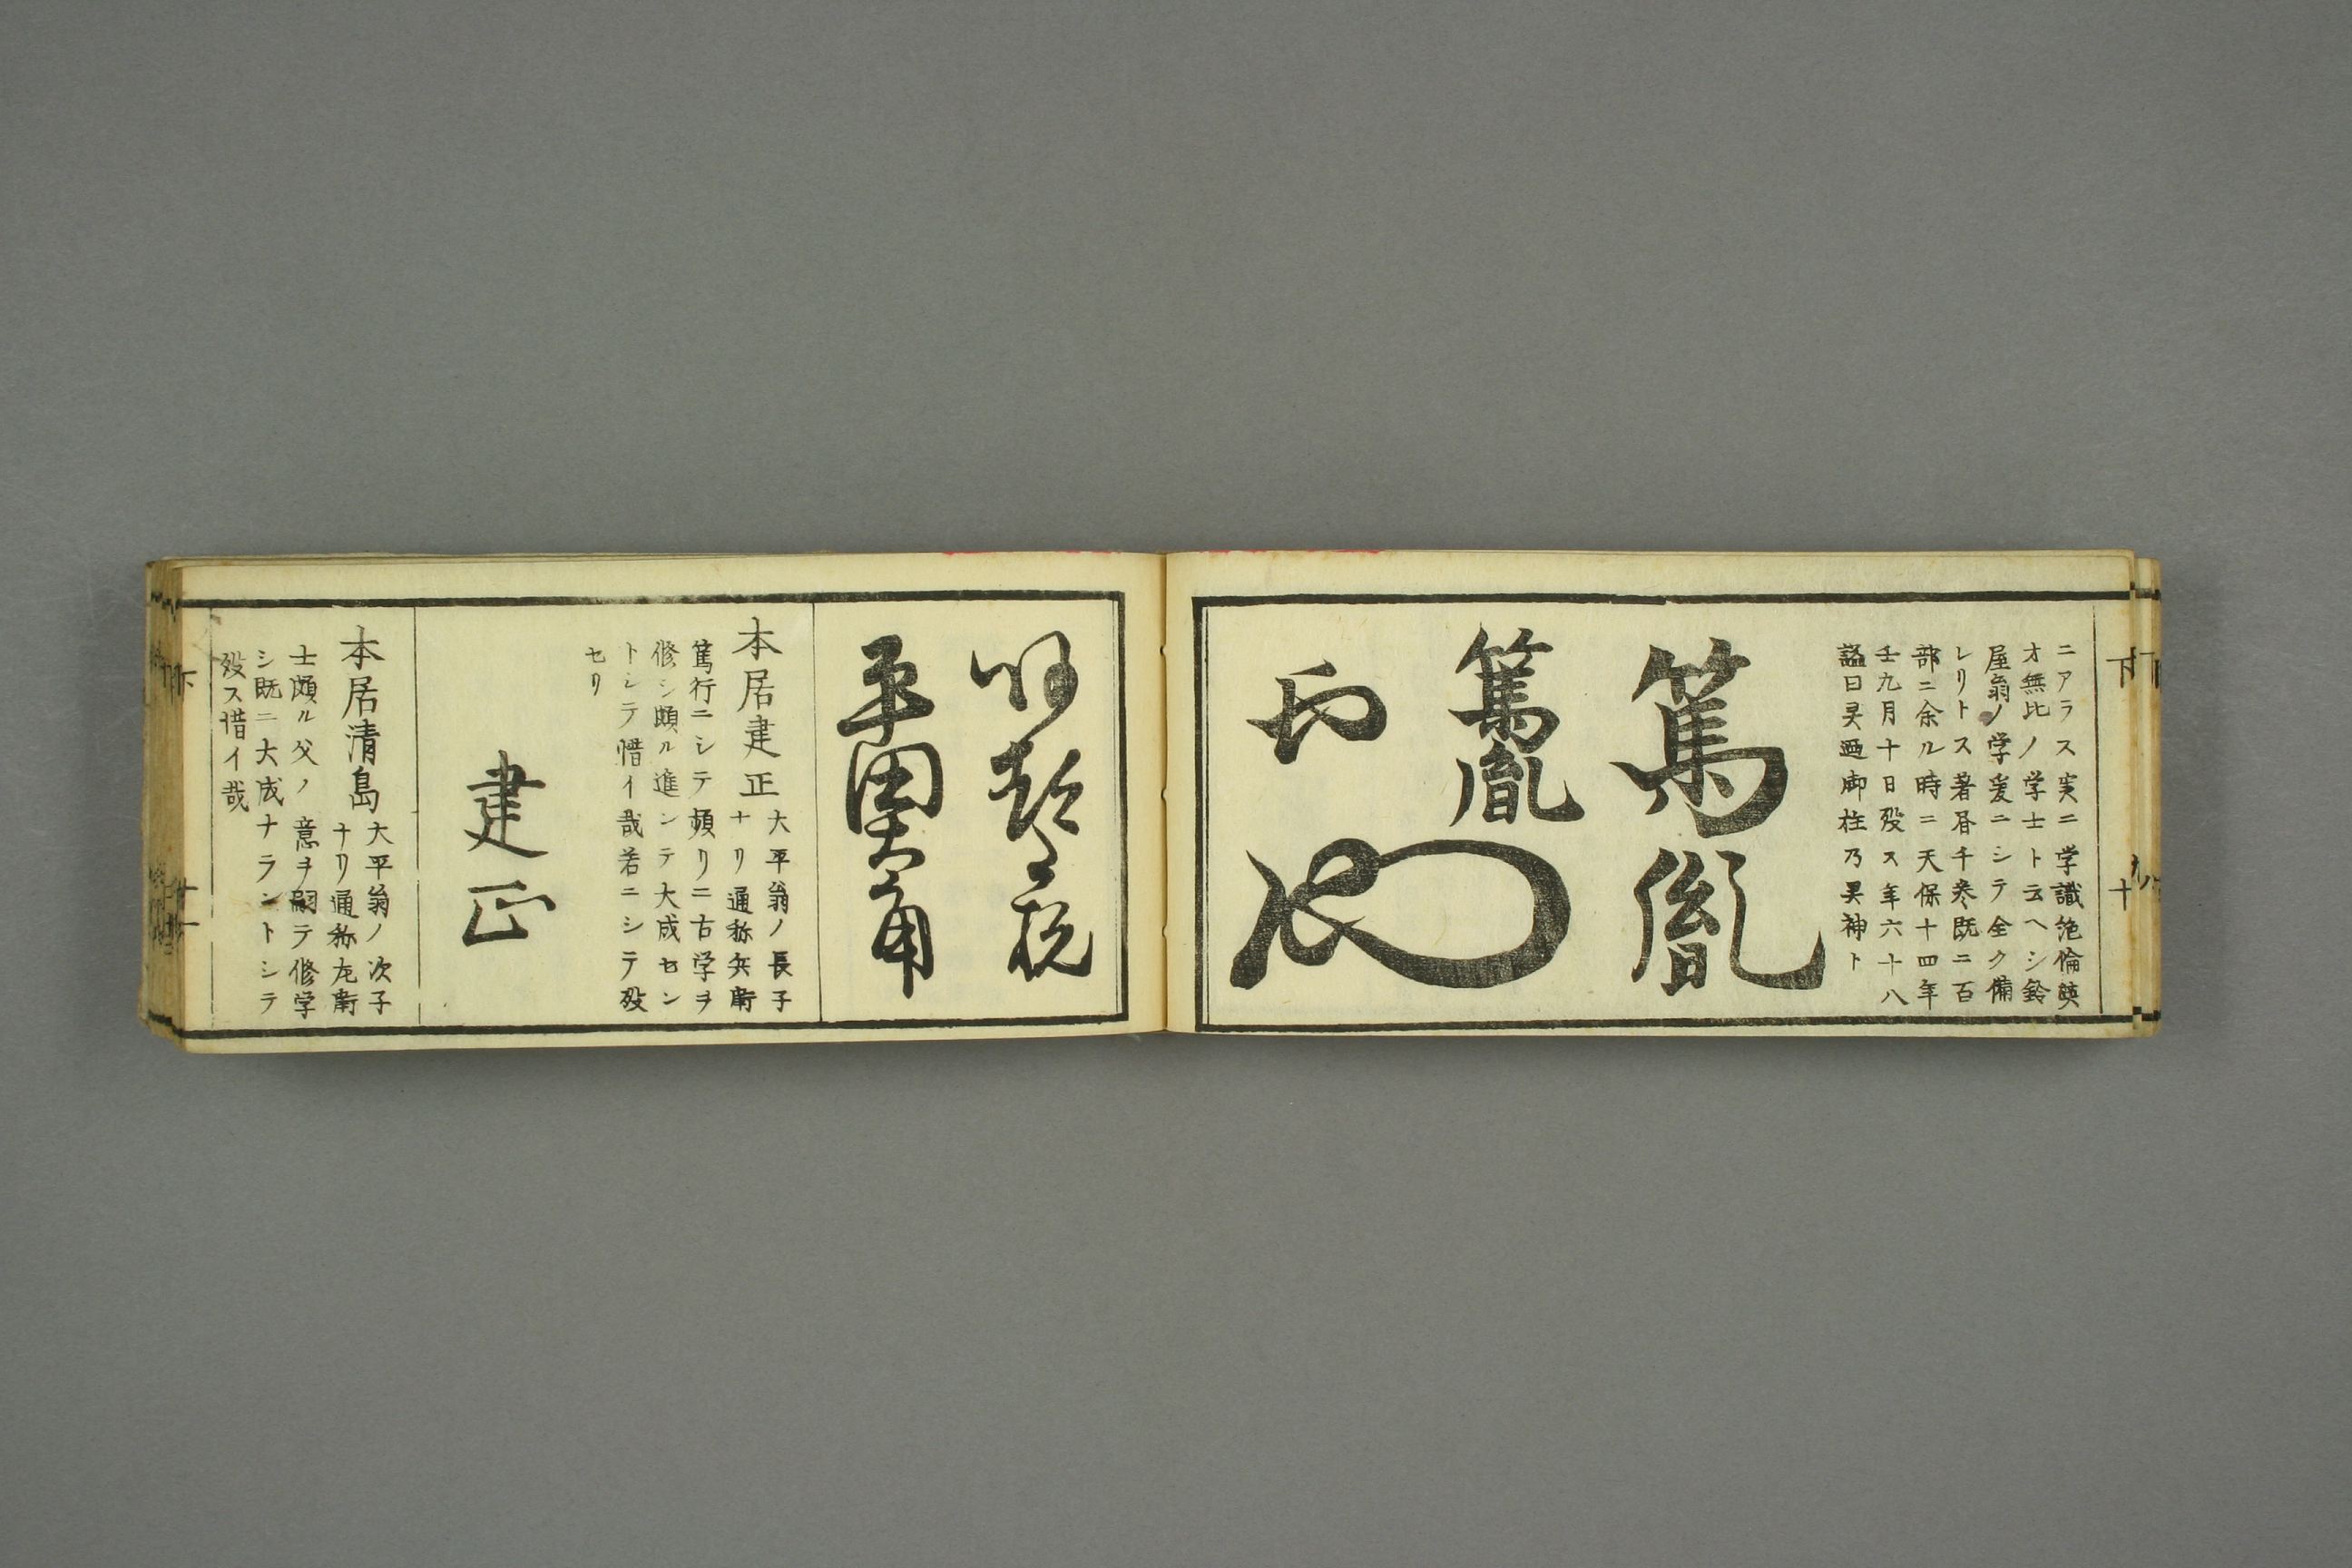 ニアラス実ニ学識絶倫暎
才無比ノ学士ト云ヘシ鈴
屋翁ノ学爰ニシテ全ク備
レリトス著昏千巻既ニ百
部ニ余ル時ニ天保十四年
壬九月十日歿ス年六十八
謚曰霊廼御柱乃霊神ト
篤胤
篤胤
平田大角
本居建正
大平翁ノ長子
ナリ通称兵衛
篤行ニシテ頻リニ古学ヲ
修シ頗ル進ンテ大成セン
トシテ惜イ哉若ニシテ歿
セリ
建正
本居清島
大平翁ノ次子
ナリ通称左衛
士頗ル父ノ意ヲ嗣テ修学
シ既ニ大成ナラントシテ
歿ス惜イ哉
下
十
下
十一